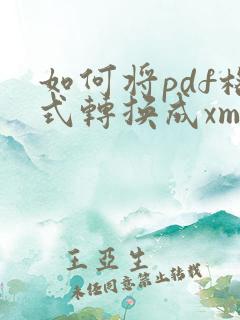 如何将pdf格
式轉换成xm
王亞生
未经同意禁止转载